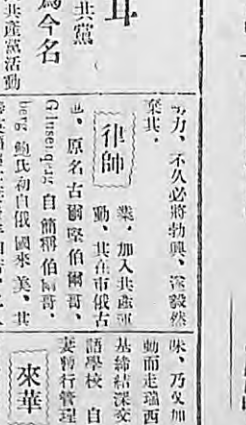 共黨
為今名
共產黨活動
力、不久必將勃興、遂毅然
棄其
律師
業、加入共產運
動、其在市俄古
也、原名古爾堅伯爾哥、
自簡稱伯爾哥、
berg 鮑氏初自俄國來美、其
味、乃又加
動而走瑞西
基締結深交
語學校 自
妻暫行管理
來華